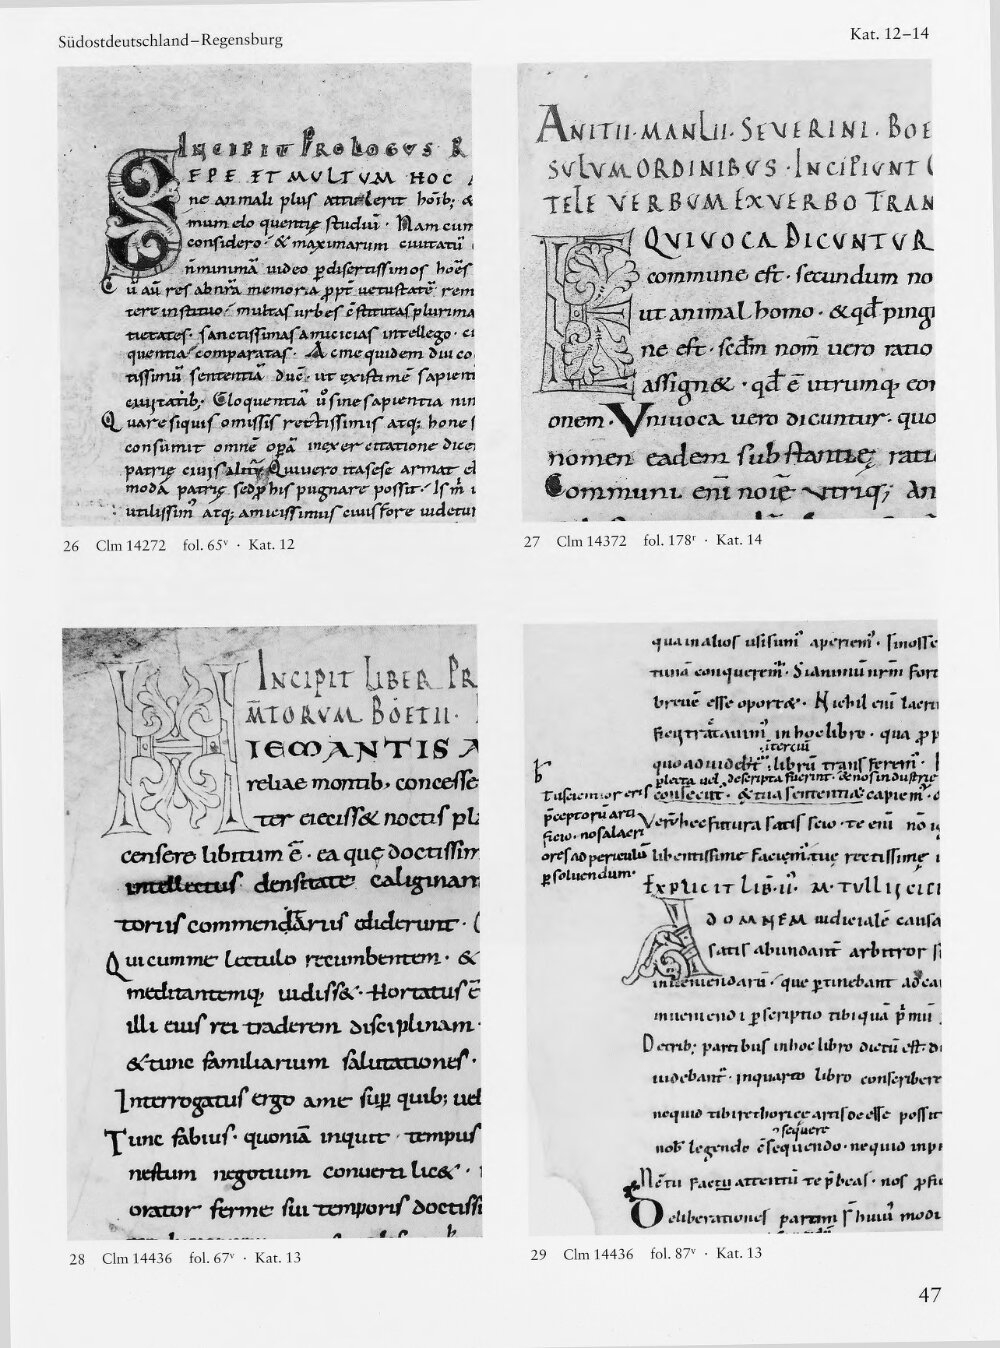 Südostdeutschland–Regensburg
Kat. 12–14
INCIPIT PROLOGVS R
SEPE ET MVLTVM HOC
ne an mali pluſ attulerit hoīb; &
mum elo quentię ſtudiū · Nam cum
considero · & maximarum ciuitatū
ñ minimā uideo ꝑdiſertiſſimoſ hoēſ
Cū aū reſ ab nr̄a memoria ꝓpt̄ uetuſtatē rem
tere inſtituo · multaſ urbeſ c̄ſtitutaſ plurima
quentia comparataſ · Ac me quidem diu co
tiſſimū ſententiā ducē · ut exiſtimē ſapient
ciuitatib; Eloquentiā ū ſine ſapientia nim
Quare ſiquiſ omiſſiſ rectiſſimiſ atq; honeſ
conſumit omnē opā inexercitatione dice
patrię ciuiſ alit Qui uero itaſeſe armat el
modā patrię ſed ꝓ hiſ pugnare poſſit · Iſ m̄
utiliſſim atq; amiciſſimuſ ciuiſ fore uidetur
26 Clm 14272 fol. 65ᵛ · Kat. 12
ANITII · MANLII · SEVERINI · BOE
SVLVM ORDINIBVS · INCIPIVNT
TELE VERBVM EX VERBO TRAN
EQVIVOCA DICVNTVR
commune eſt · ſecundum no
ut animal homo · & qđ pingi
ne eſt · ſcdm nom̄ uero ratio
aſſign& · qđ ē utrumq; con
onem · Vniuoca uero dicuntur · quo
nomen eadem ſubſtantię rati
Communi eni noīe utriq; An
27 Clm 14372 fol. 178ʳ · Kat. 14
INCIPIT LIBER PR
M̄TORVM BOETII ·
HIEMANTIS A
reliae montib; conceſſe
ter eieciſſ& noctiſ pla
cenſere libitum ē · ea quę doctiſſim
intellectuſ denſitate caliginam
toriiſ commendāriiſ ediderunt ·
Quicumme lectulo recumbentem · &
meditantemq; uidiſſ& · Hortatuſ ē
illi eiuſ rei traderem diſciplinam ·
& tunc familiarium ſalutationeſ ·
Interrogatuſ ergo ame ſup quib; uel
Tunc fabiuſ · quoniā inquit · tempuſ
neſtum negotium conuerti lic& ·
orator ferme ſui temporiſ doctiſſi
28 Clm 14436 fol. 67ᵛ · Kat. 13
qua in alioſ uſi ſumꝰ aperiemꝰ · ſinoſſe
tunā conquerem̄ · Si animū nr̄m fort
breuē eſſe oport& · Nichil eni laeri
in hoc libro · qua ꝓp
itercū
librū tranſferem̄ ·
pleta uel deſcripta fuerint · & noſ induſtrie
& tua ſententia capiem̄ ·
ꝑceptorū arti
ficio · noſ alacri
oreſ ad periculū
ꝑſoluendum ·
Verū hec futura ſatiſ ſcio · te eni nō
libentiſſime faciem tuę rectiſſimę
Explicit LIB · II · M · TVLLII CICE
ADOMNEM iudicialē cauſa
ſatiſ abundant̄ arbitror ſi
inueniendarū · que ꝑtinebant ad ea
inueniendi ꝑſcriptio tibi quā p̄miſ
Detrib; partibuſ in hoc libro dictū eſt · di
uidebant̄ · inquarto libro conſcribere
nequid tibi rethorice artiſ deeſſe poſſit
ſequere
nob̄ legendo c̄ſequendo · nequid inpe
Deliberationeſ partim ſ̄ huiuſ modi
29 Clm 14436 fol. 87ᵛ · Kat. 13
47